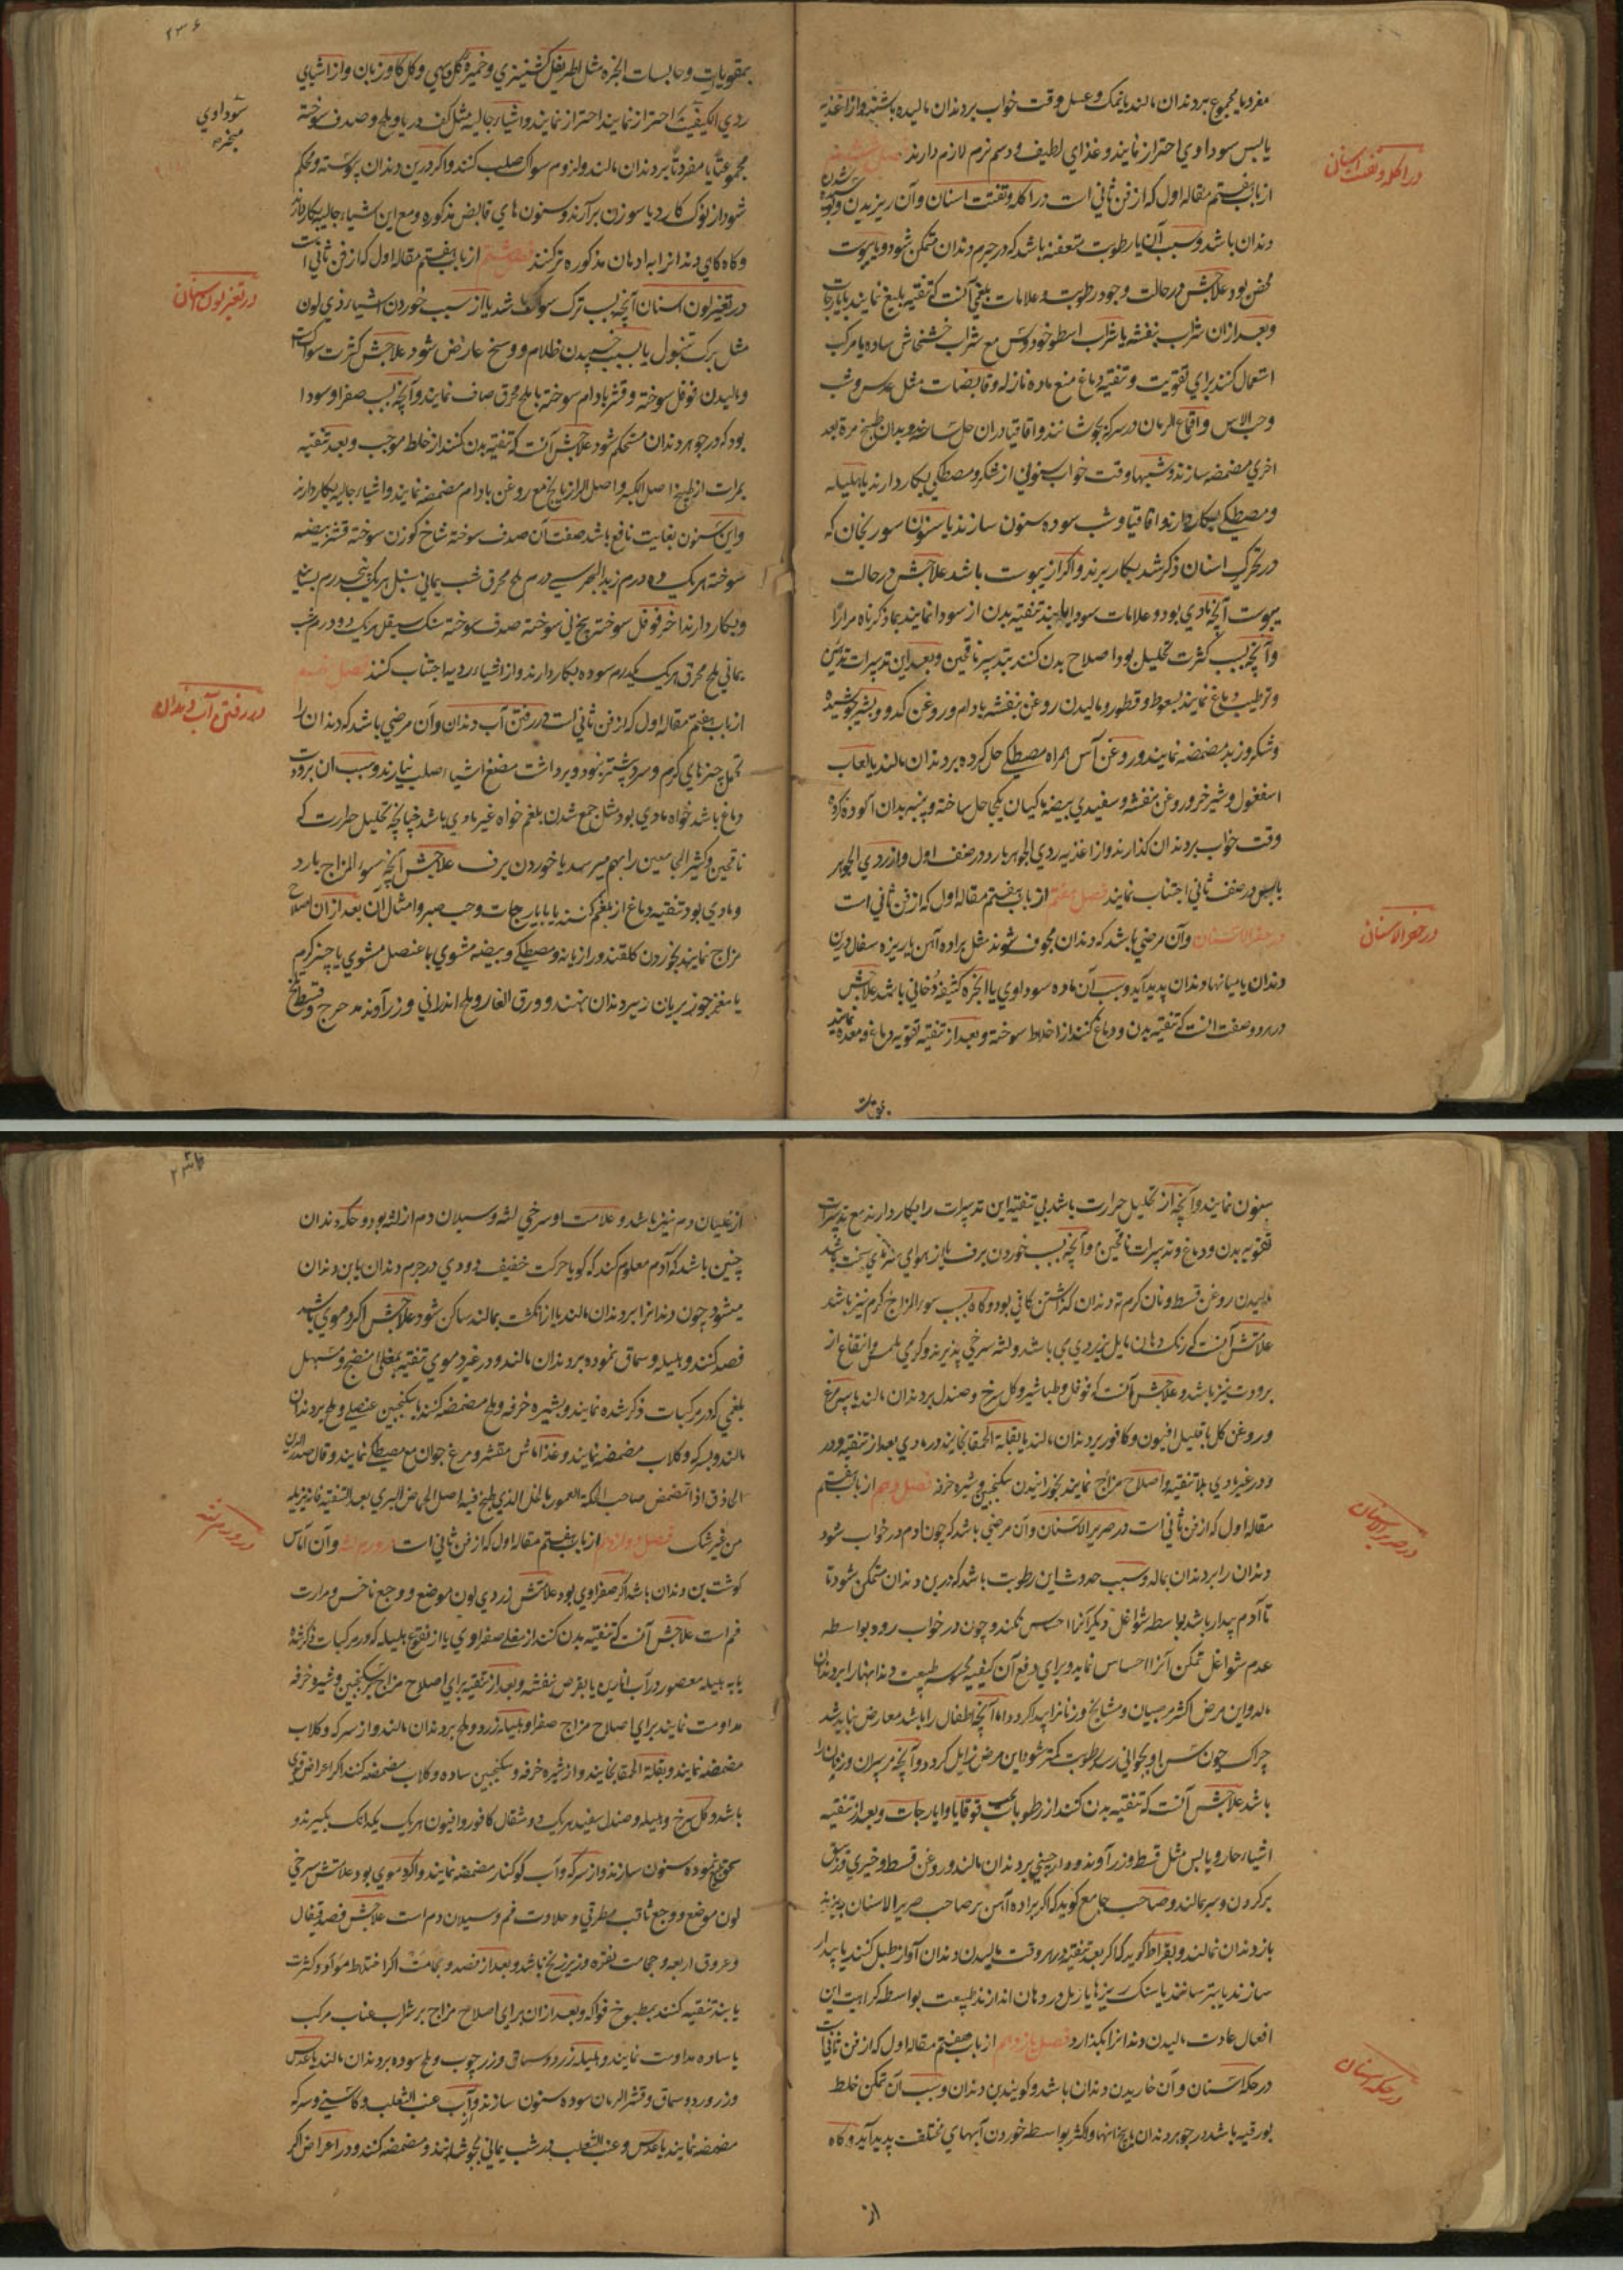 مفرد یا مجموع بر دندان مالند یا نمک و عسل وقت خواب بر دندان مالیده باشند و از اغذیه
یابس سوداوی احتراز نمایند و غذای لطیف و دسم نرم لازم دارند فصل ششم
در اکله و تفتت اسنان
از باب هفتم مقاله اول که از فن ثانی است در اکله و تفتت اسنان و آن ریزیدن و
دندان باشد و سبب آن یا رطوبت متعفنه باشد که در جرم دندان متمکن شود و یا یبوست
محض بود علاجش در حالت وجود رطوبت و علامات بلغمی آنست که تنقیه بلیغ نمایند بایارجات
و بعد از ان شراب بنفشه یا شراب اسطوخودوس مع شراب خشخاش ساده یا مرکب
استعمال کنند برای تقویت و تنقیه دماغ منع ماده نازله و قابضات مثل عدس و شب
و حب الاس و اقماع الرمان در سرکه بجوشانند و اقاقیا دران حل ساخته و بدان طبیخ مرة بعد
اخری مضمضه سازند و شبها وقت خواب سنونی از شکر و مصطکی بکار دارند یا هلیله
و مصطکی بکار دارند و اقاقیا و شب سوده سنون سازند یا سنون سورنجان که
در تحرک اسنان ذکر شد بکار برند و اگر از یبوست باشد علاجش در حالت
یبوست آنچه مادی بود و علامات سودا یابند تنقیه بدن از سودا نمایند بما ذکرناه مرارا
و آنچه بسبب کثرت تحلیل بود اصلاح بدن کنند بتدبیر ناقهین و بعد این تدبیرات
و ترطیب دماغ نمایند بسعوط و قطور و مالیدن روغن بنفشه بادام و روغن کدو و بشیر
و شکر و زبد مضمضه نمایند و روغن آس همراه مصطکی حل کرده بر دندان مالند یا لعاب
اسفغول و شیر خر و روغن بنفشه و سفیدی بیضه ماکیان یکجا حل ساخته و پنبه بدان آلوده کرده
وقت خواب بر دندان گذارند و از اغذیه ردی الجوهر بارد در صنف اول و از ردی الجوهر
یابس در صنف ثانی اجتناب نمایند فصل هفتم از باب هفتم مقاله اول که از فن ثانی است
در حفر الاسنان
در حفر الاسنان و آن مرضی باشد که دندان مجوف شوند مثل براده آهن یا ریزه سفال در بن
دندان یا میانها دندان پدید آید و سبب آن ماده سوداوی یا ابخره کثیفه دخانی باشد علاجش
در هر دو صفت انست که تنقیه بدن و دماغ کنند از اخلاط سوخته و بعد از تنقیه تقویه دماغ و معده نمایند
بمقویات
٢٣٦
بمقویات و حابسات ابخره مثل اطریفل کشنیزی و خمیره گل و بهی و گل گاوزبان و از اشیای
سوداوی مبخره
ردی الکیفیت احتراز نمایند احتراز نمایند و اشیاء جالیه مثل کف دریا و ملح و صدف سوخته
مجموعتا یا مفردتا بر دندان مالند و لزوم سواک صلب کنند و اگر در بن دندان پیوسته و محکم
شود از نوک کارد یا سوزن برآرند و سنون های قابض مذکوره و مع این اشیاء جالیه بکار دارند
و گاه گاهی دندانرا به ادهان مذکوره تر کنند فصل هشتم از باب هفتم مقاله اول که از فن ثانی است
در تغیر لون اسنان
در تغیر لون اسنان آنچه بسبب ترک سواک باشد یا از سبب خوردن اشیاء ذی لون
مثل برک تنبول یا بسبب خسپیدن ظلام و وسخ عارض شود علاجش کثرت سواک است
و مالیدن فوفل سوخته و قشر بادام سوخته با ملح محرق صاف نمایند و آنچه بسبب صفرا و سودا
بود که در جوهر دندان مستحکم شود علاجش آنست که تنقیه بدن کنند از خلط موجب و بعد تنقیه
بمرات از طبیخ اصل الکبر و اصل الرازیانج مع روغن بادام مضمضه نمایند و اشیاء جالیه بکار دارند
و این سنون بغایت نافع باشد صفت آن صدف سوخته شاخ گوزن سوخته قشر بیضه
سوخته هریک ده درم زبد البحر سی درم ملح محرق شب یمانی سنبل هریک پنجدرم بسایند
و بکار دارند اخر فوفل سوخته بیخ نی سوخته صدف سوخته سنک هریک دو درم شب
یمانی ملح محرق هریک یکدرم سوده بکار دارند و از اشیاء ردیه اجتناب کنند فصل نهم
در رفتن آب دندان
از باب هفتم مقاله اول که از فن ثانی است در رفتن آب دندان و آن مرضی باشد که دندان را
تحمل چیزهای گرم و سرد بیشتر نبود و برداشت مضغ اشیاء صلب نیارند و سبب ان برودت
دماغ باشد خواه مادی بود مثل جمع شدن بلغم خواه غیر مادی باشد چنانچه تحلیل حرارت که
ناقهین و کثیر الجماعین را بهم میرسد یا خوردن برف علاجش آنچه سوء المزاج بارد
و مادی بود تنقیه دماغ از بلغم کنند بایارجات و حب صبر و امثال آن بعد از ان اصلاح
مزاج نمایند بخوردن گلقند و رازیانه و مصطکی و بیضه مشوی یا عنصل مشوی یا چیز گرم
یا مغز جوز بریان زیر دندان نهند و ورق الغار و ملح اندرانی و زراوند مدحرج و قسط تلخ
سنون نمایند و آنچه از تحلیل حرارت باشد بی تنقیه این تدبیرات را بکار دارند مع تدبیرات
تقویه بدن و دماغ و تدبیرات ناقهین و آنچه بسبب خوردن برف یا از هوای سرد سخت باشد
مالیدن روغن قسط و نان گرم ته دندان گذاشتن کافی بود و گاه بسبب سوء المزاج گرم نیز باشد
علامتش آنست که رنگ دهان مایل بزردی می باشد و لثه سرخی پذیرند و گرمی بلمس و انتفاع از
برودت نیز باشد و علاجش آنست که فوفل و طباشیر و گل سرخ و صندل بر دندان مالند یا پیه مرغ
و روغن گل با قلیل افیون و کافور بر دندان مالند یا بقلة الحمقا بخایند در مادی بعد از تنقیه و در
و در غیر مادی بلا تنقیه و اصلاح مزاج نمایند بخورانیدن سکنجبین و شیره خرفه فصل دهم از باب هفتم
در صریر الاسنان
مقاله اول که از فن ثانی است در صریر الاسنان و آن مرضی باشد که چون ادم در خواب شود
دندان را بر دندان بمالد و سبب حدوث این رطوبت باشد که در بن دندان متمکن شود تا
تا آدم بیدار باشد بواسطه شواغل دیگر آنرا احساس نکند و چون در خواب رود بواسطه
عدم شواغل تمکن آنرا احساس نماید و برای دفع آن کیفیه محسوسه طبیعت دندانها را بر دندان
مالد و این مرض اکثر صبیان و مشایخ و زنانرا پیدا گردد اما آنچه اطفال را باشد معارض نباید شد
چراکه چون سن او بجوانی رسد رطوبت کمتر شود این مرض زایل گردد و آنچه مر پیران و زنان را
باشد علاجش آنست که تنقیه بدن کنند از رطوبات بحب قوقایا و ایارجات و بعد از تنقیه
اشیاء حار و یابس مثل قسط و زراوند و دارچینی بر دندان مالند و روغن قسط و خیری و زنبق
بر گردن و سر بمالند و صاحب جامع گوید که اگر براده آهن بر صاحب صریر الاسنان بریزند
باز دندان نمالند و بقراط گوید که اگر بعد تنقیه در هر وقت مالیدن دندان آواز طبل کنند یا بیدار
سازند یا بترسانند یا سنک ریزها یا رمل در دهان اندازند طبیعت بواسطه کراهیت این
افعال عادت مالیدن دندانرا بگذارد فصل یازدهم از باب هفتم مقاله اول که از فن ثانی است
در حکه اسنان
در حکه اسنان و آن خاریدن دندان باشد و گویند بن دندان و سبب آن تمکن خلط
بورقیه باشد در جوهر دندان یا بیخ انها و اکثر بواسطه خوردن آبهای مختلف پدید آید و گاه
از
از غلیان دم نیز باشد و علامت او سرخی لثه و سیلان دم از لثه بود و حکه دندان
چنین باشد که آدم معلوم کند که گویا حرکت خفیف دودی در جرم دندان یا بن دندان
میشود چون دندانرا بر دندان مالند یا از انگشت بمالند ساکن شود علاجش اگر دموی باشد
فصد کنند و هلیله و سماق نموده بر دندان مالند و در غیر دموی تنقیه بمغلی منضج و مسهل
بلغمی که در مرکبات ذکر شده نمایند و بشیره خرفه و ملح مضمضه کنند یا سکنجبین عنصلی و ملح بر دندان
مالند و بسرکه و گلاب مضمضه نمایند و غذا ماش مقشر و مرغ جوان مع مصطکی نمایند و قال
الحاذق اذا تمضمض صاحب الحکة العمور بالخل الذی طبخ فیه اصل الحماض البری بعد التنقیة فانه یزیله
در ورم لثه
من غیر شک فصل دوازدهم از باب هفتم مقاله اول که از فن ثانی است در ورم لثه و آن آماس
گوشت بن دندان باشد اگر صفراوی بود علامتش زردی لون موضع و وجع ناخس و مرارت
فم است علاجش آنست که تنقیه بدن کنند از مغلی صفراوی یا از نقوع هلیله که در مرکبات ذکر شده
یا به هلیله معصور در آب انارین یا بقرص بنفشه و بعد از تنقیه برای اصلاح مزاج سکنجبین و شیره خرفه
مداومت نمایند برای اصلاح مزاج صفرا و هلیله زرد و ملح بر دندان مالند و از سرکه و گلاب
مضمضه نمایند و بقلة الحمقا بخایند و از شیره خرفه و سکنجبین ساده و گلاب مضمضه کنند اگر اعراض قوی
باشد و گل سرخ و هلیله و صندل سفید هریک دو مثقال کافور و افیون هریک یکدانک بگیرند و
سحق نموده سنون سازند و از سرکه و آب کوکنار مضمضه نمایند و اگر دموی بود علامتش سرخی
لون موضع و وجع ثاقب مطرقی و حلاوت فم و سیلان دم است علاجش فصد قیفال
و عروق اربعه و حجامت نقره و زیر زنخ باشد و بعد از فصد و حجامت اگر اختلاط مواد و کثرت
یابند تنقیه کنند بمطبوخ فواکه و بعد از ان برای اصلاح مزاج بر شراب عناب مرکب
یا ساده مداومت نمایند و هلیله زرد و سماق و زرچوب و ملح سوده بر دندان مالند یا عدس
و زرورد و سماق و قشر الرمان سوده سنون سازند و از آب عنب الثعلب و کاسنی و سرکه
مضمضه نمایند یا عدس و عنب الثعلب در شب یمانی بجوشانند و مضمضه کنند و در اعراض اگر